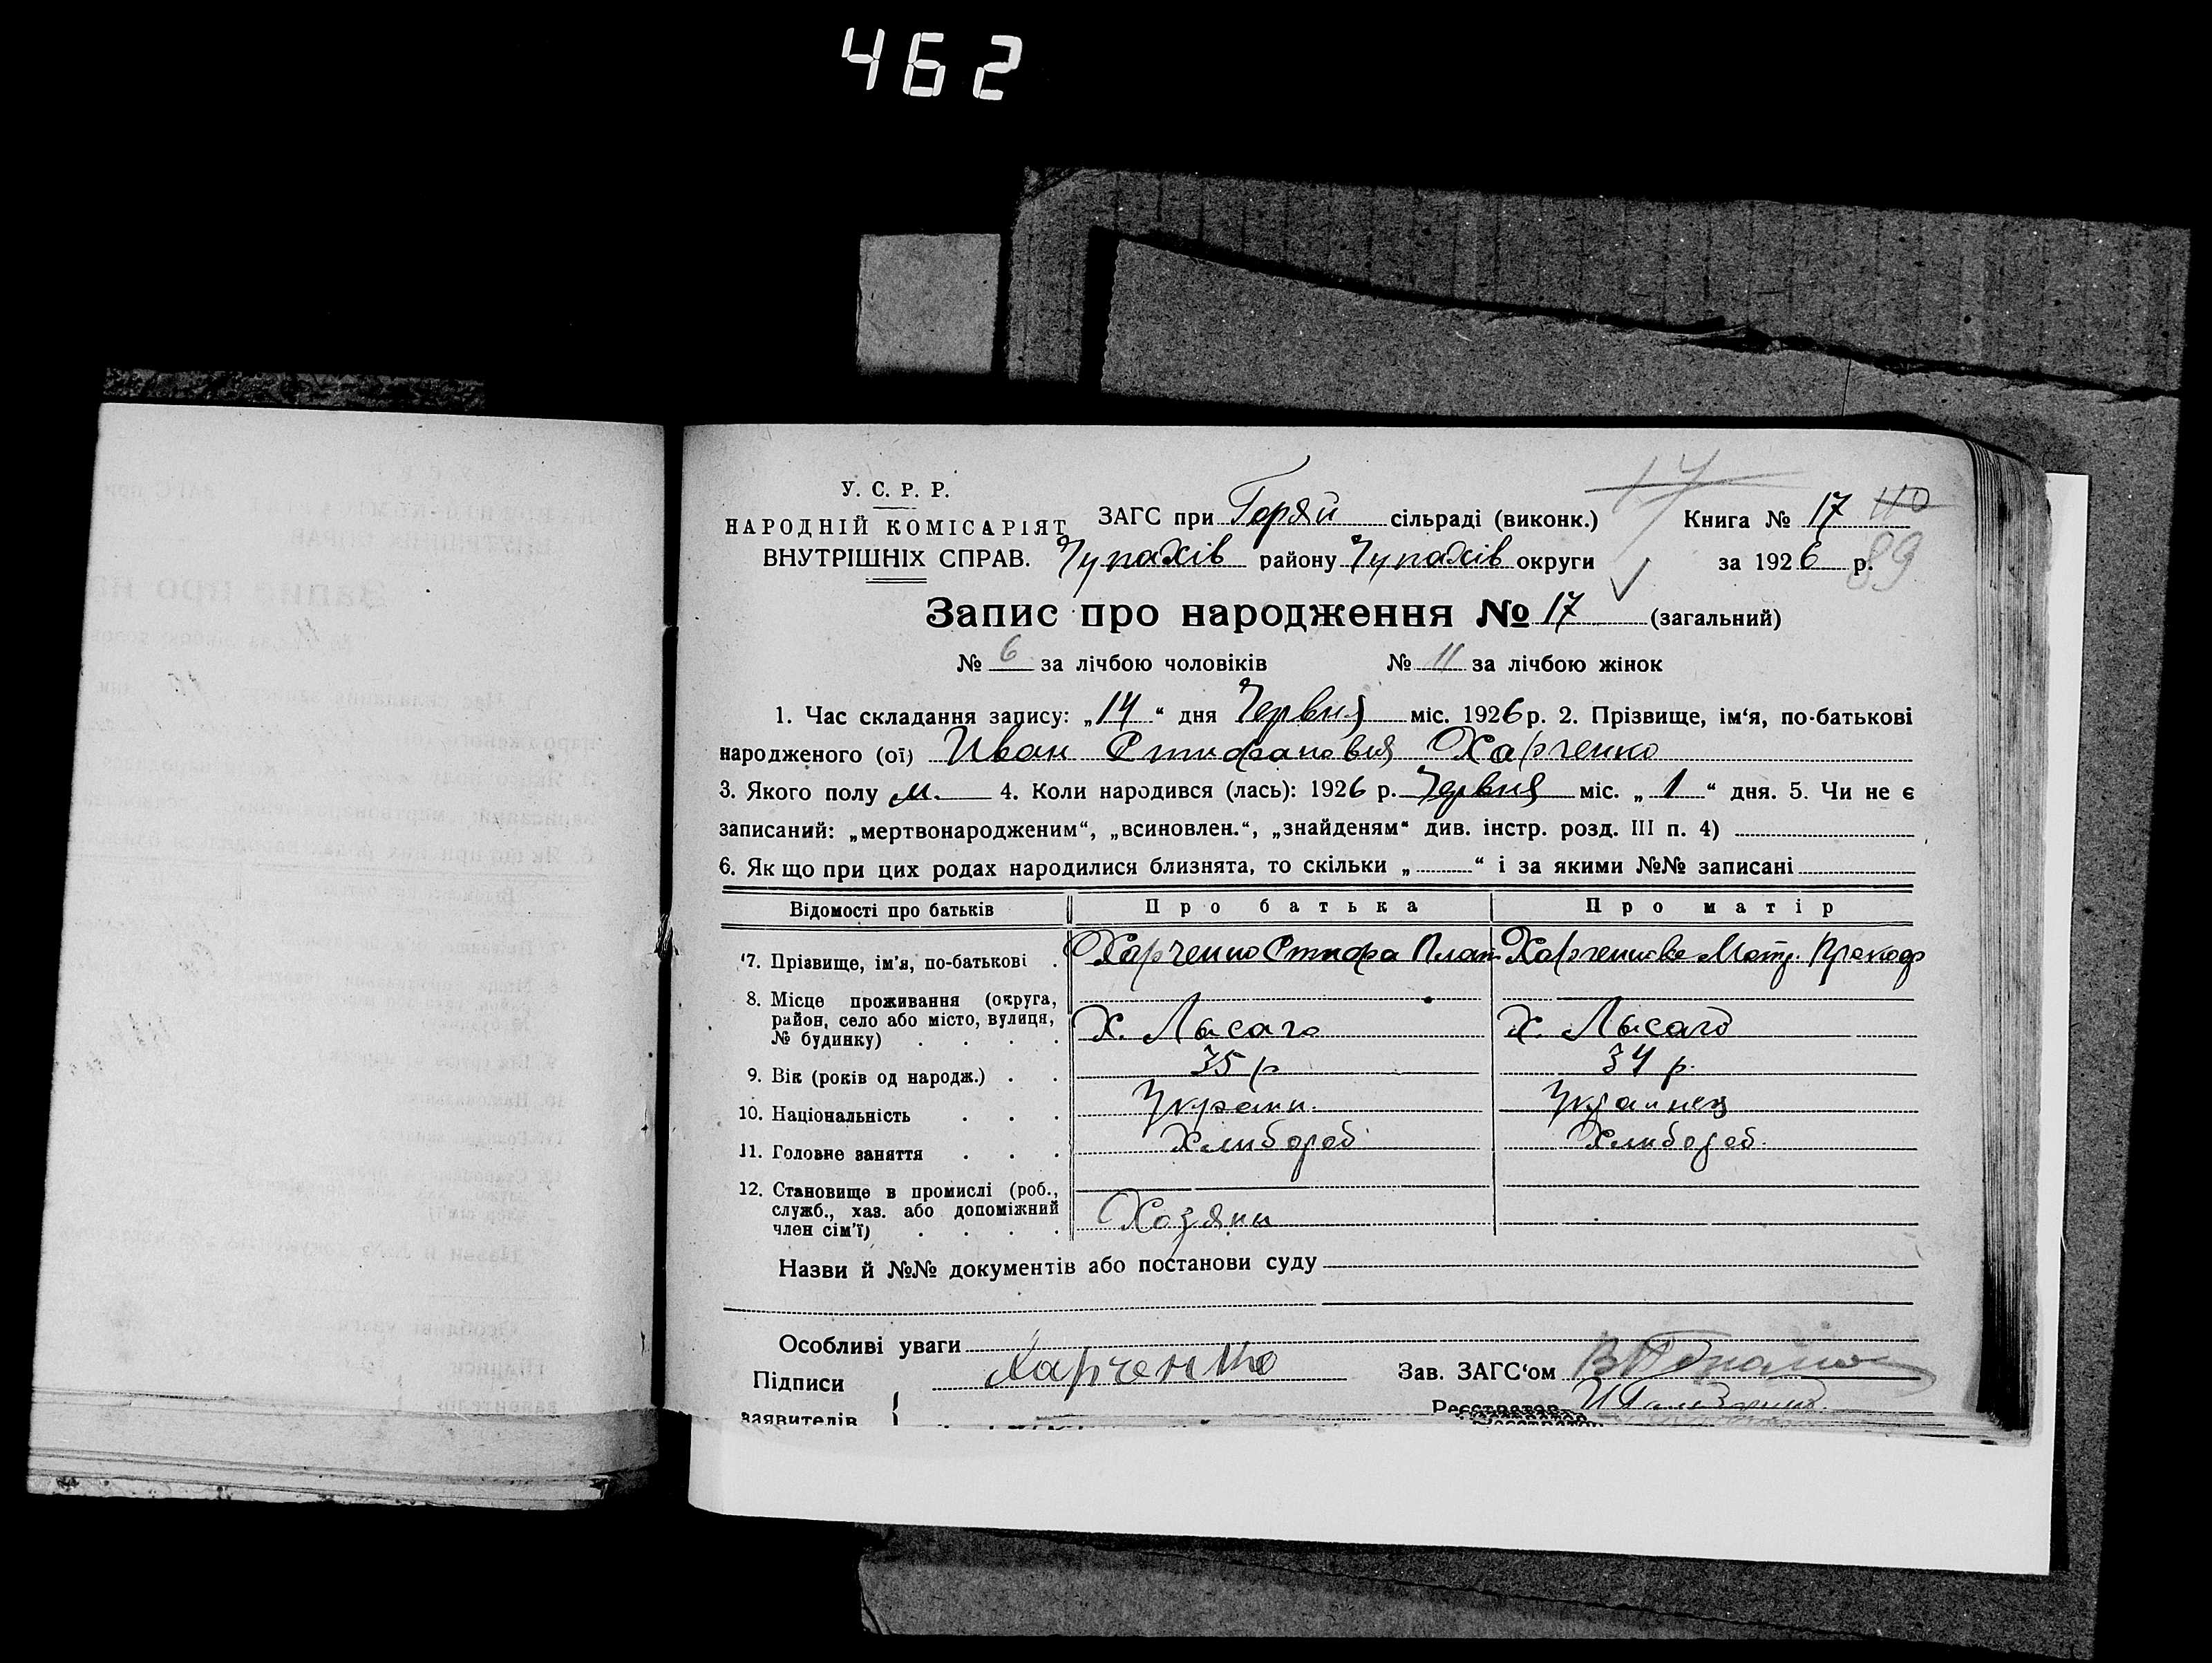 462
У. С. Р. Р.
НАРОДНІЙ КОМІСАРІЯТ
ВНУТРІШНІХ СПРАВ.
17
ЗАГС при Горяй сільраді (виконк.) Книга № 17 110
Чупахів району Чупахів округи за 1926 р. 89
Запис про народження № 17 (загальний)
№ 6 за лічбою чоловіків № 11 за лічбою жінок
1. Час складання запису: „14“ дня Червня міс. 1926 р. 2. Прізвище, ім‘я, по-батькові
народженого (ої) Иван Стифановия Харченко
3. Якого полу м. 4. Коли народився (лась): 1926 р. Червня міс. „1“ дня. 5. Чи не є
записаний: „мертвонародженим“, „всиновлен.“, „знайденям“ див. інстр. розд. III п. 4)
6. Як що при цих родах народилися близнята, то скільки „ “ і за якими №№ записані
Відомості про батьків Про батька Про матір
7. Прізвище, ім’я, по-батькові Харченко Стифа Плат Харченкова Мотр. Прокоф
8. Місце проживання (округа,
район, село або місто, вулиця,
№ будинку) Х. Лысаго Х. Лысаго
9. Вік (років од народж.) 35 р 34 р.
10. Національність Украин. Украинец
11. Головне заняття Хлибороб Хлибороб.
12. Становище в промислі (роб.,
служб., хаз. або допоміжний
член сім’ї) Хозяин
Назви й №№ документів або постанови суду
Особливі уваги
Підписи Харченко Зав. ЗАГС‘ом
заявителів { Реєстратор